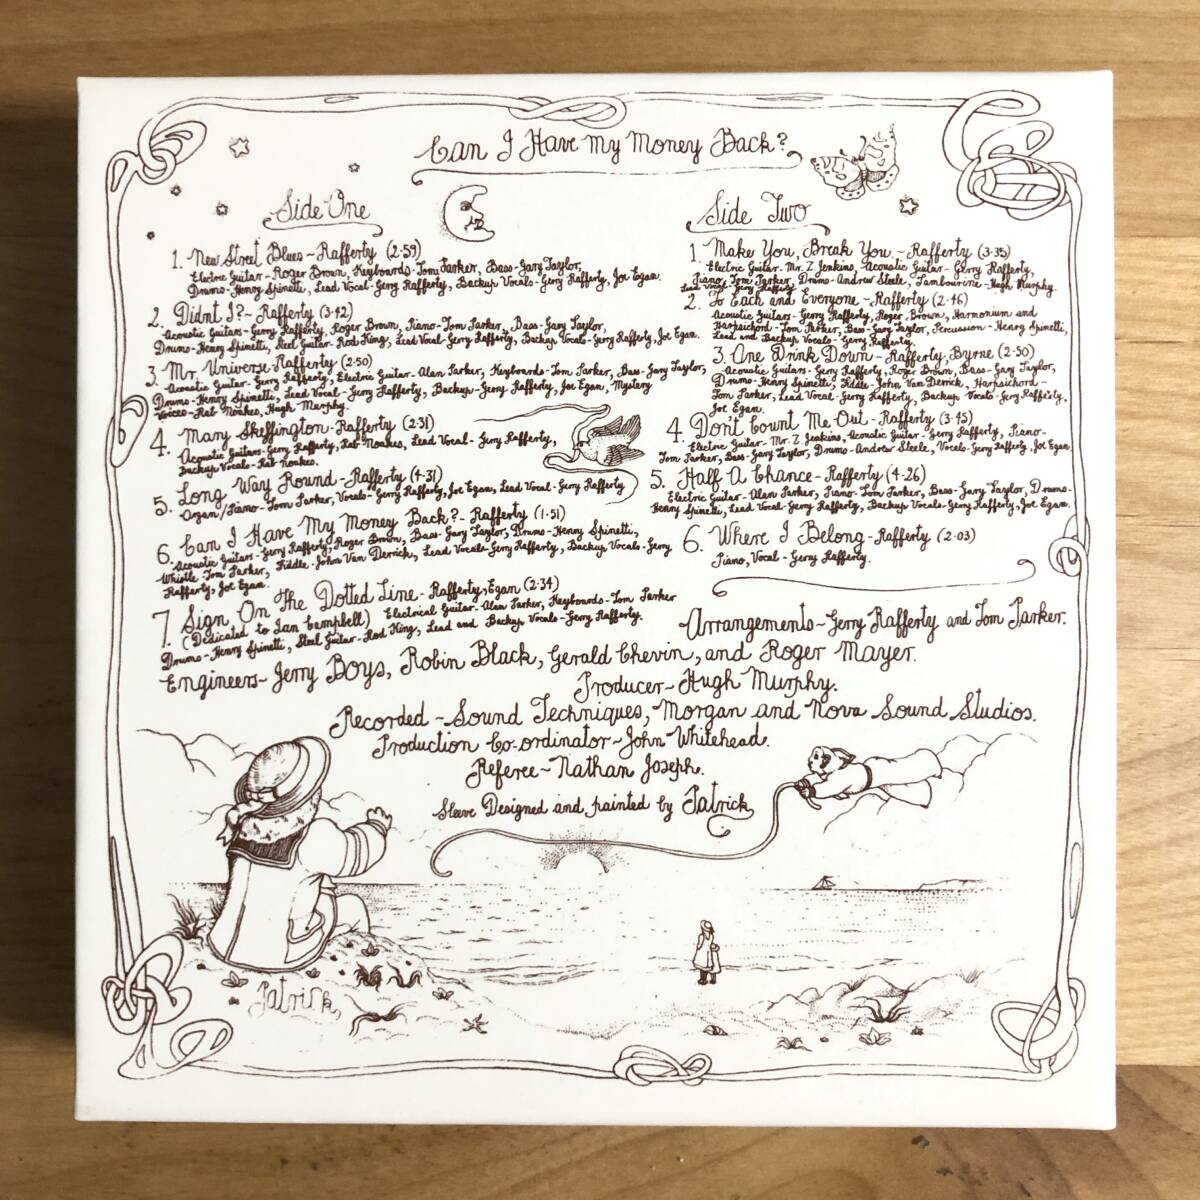 Can I Have My Money Back?
Side One
1. New Street Blues~Rafferty (2·59)
Electric Guitar-Roger Brown, Keyboards-Tom Parker, Bass-Gary Taylor,
Drums-Henry Spinetti, Lead Vocal-Gerry Rafferty, Backup Vocals-Gerry Rafferty, Joe Egan.
2. Didnt I?~Rafferty (3·42)
Acoustic Guitars-Gerry Rafferty, Roger Brown, Piano-Tom Parker, Bass-Gary Taylor,
Drums-Henry Spinetti, Steel Guitar-Rod King, Lead Vocal-Gerry Rafferty, Backup Vocals-Gerry Rafferty, Joe Egan.
3. Mr. Universe-Rafferty (2·50)
Acoustic Guitar-Gerry Rafferty, Electric Guitar-Alan Parker, Keyboards-Tom Parker, Bass-Gary Taylor,
Drums-Henry Spinetti, Lead Vocal-Gerry Rafferty, Backup-Gerry Rafferty, Joe Egan, Mystery
Voices-Rab Noakes, Hugh Murphy.
4. Mary Skeffington-Rafferty (2·31)
Acoustic Guitars-Gerry Rafferty, Rab Noakes, Lead Vocal-Gerry Rafferty,
Backup Vocals-Rab Noakes.
5. Long Way Round-Rafferty (4·31)
Organ/Piano-Tom Parker, Vocals-Gerry Rafferty, Joe Egan, Lead Vocal-Gerry Rafferty
6. Can I Have My Money Back?-Rafferty (1·51)
Acoustic Guitars-Gerry Rafferty, Roger Brown, Bass-Gary Taylor, Drums-Henry Spinetti,
Whistle Tom Parker, Fiddle-John Van Derrick, Lead Vocals-Gerry Rafferty, Backup Vocals-Gerry
Rafferty, Joe Egan.
7. Sign On The Dotted Line-Rafferty, Egan (2·34)
(Dedicated to Ian Campbell) Electrical Guitar-Alan Parker, Keyboards-Tom Parker
Drums-Henry Spinetti, Steel Guitar-Rod King, Lead and Backup Vocals-Gerry Rafferty.
Side Two
1. Make You, Break You~Rafferty (3·35)
Electric Guitar-Mr. Z. Jenkins, Acoustic Guitar-Gerry Rafferty,
Piano, Tom Parker, Drums-Andrew Steele, Tambourine-Hugh Murphy.
Lead Vocal-Gerry Rafferty
2. To Each and Everyone-Rafferty (2·46)
Acoustic Guitars-Gerry Rafferty, Roger Brown, Harmonium and
Harpsichord-Tom Parker, Bass-Gary Taylor, Percussion-Henry Spinetti,
Lead and Backup Vocals-Gerry Rafferty.
3. One Drink Down-Rafferty, Byrne (2·50)
Acoustic Guitars-Gerry Rafferty, Roger Brown, Bass-Gary Taylor,
Drums-Henry Spinetti, Fiddle-John Van Derrick, Harpsichord-
Tom Parker, Lead Vocal-Gerry Rafferty, Backup Vocals-Gerry Rafferty,
Joe Egan.
4. Don't Count Me Out-Rafferty (3·45)
Electric Guitar-Mr. Z. Jenkins, Acoustic Guitar-Gerry Rafferty, Piano-
Tom Parker, Bass-Gary Taylor, Drums-Andrew Steele, Vocals-Gerry Rafferty, Joe Egan
5. Half A Chance-Rafferty (4·26)
Electric Guitar-Alan Parker, Piano-Tom Parker, Bass-Gary Taylor, Drums-
Henry Spinetti, Lead Vocal-Gerry Rafferty, Backup Vocals-Gerry Rafferty, Joe Egan.
6. Where I Belong-Rafferty (2·03)
Piano, Vocal-Gerry Rafferty.
Arrangements~Gerry Rafferty and Tom Parker.
Engineers~Jerry Boys, Robin Black, Gerald Chevin, and Roger Mayer.
Producer~Hugh Murphy.
Recorded~Sound Techniques, Morgan and Nova Sound Studios.
Production Co-ordinator~John Whitehead.
Referee~Nathan Joseph.
Sleeve Designed and painted by Patrick
Patrick